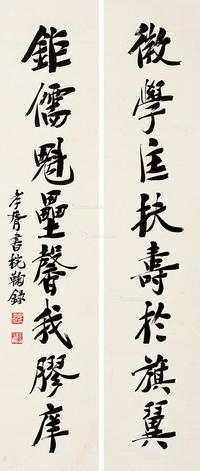 微學匡扶壽於旗翼
鉅儒魁壘馨我膠庠
孝胥書枕鞠錄